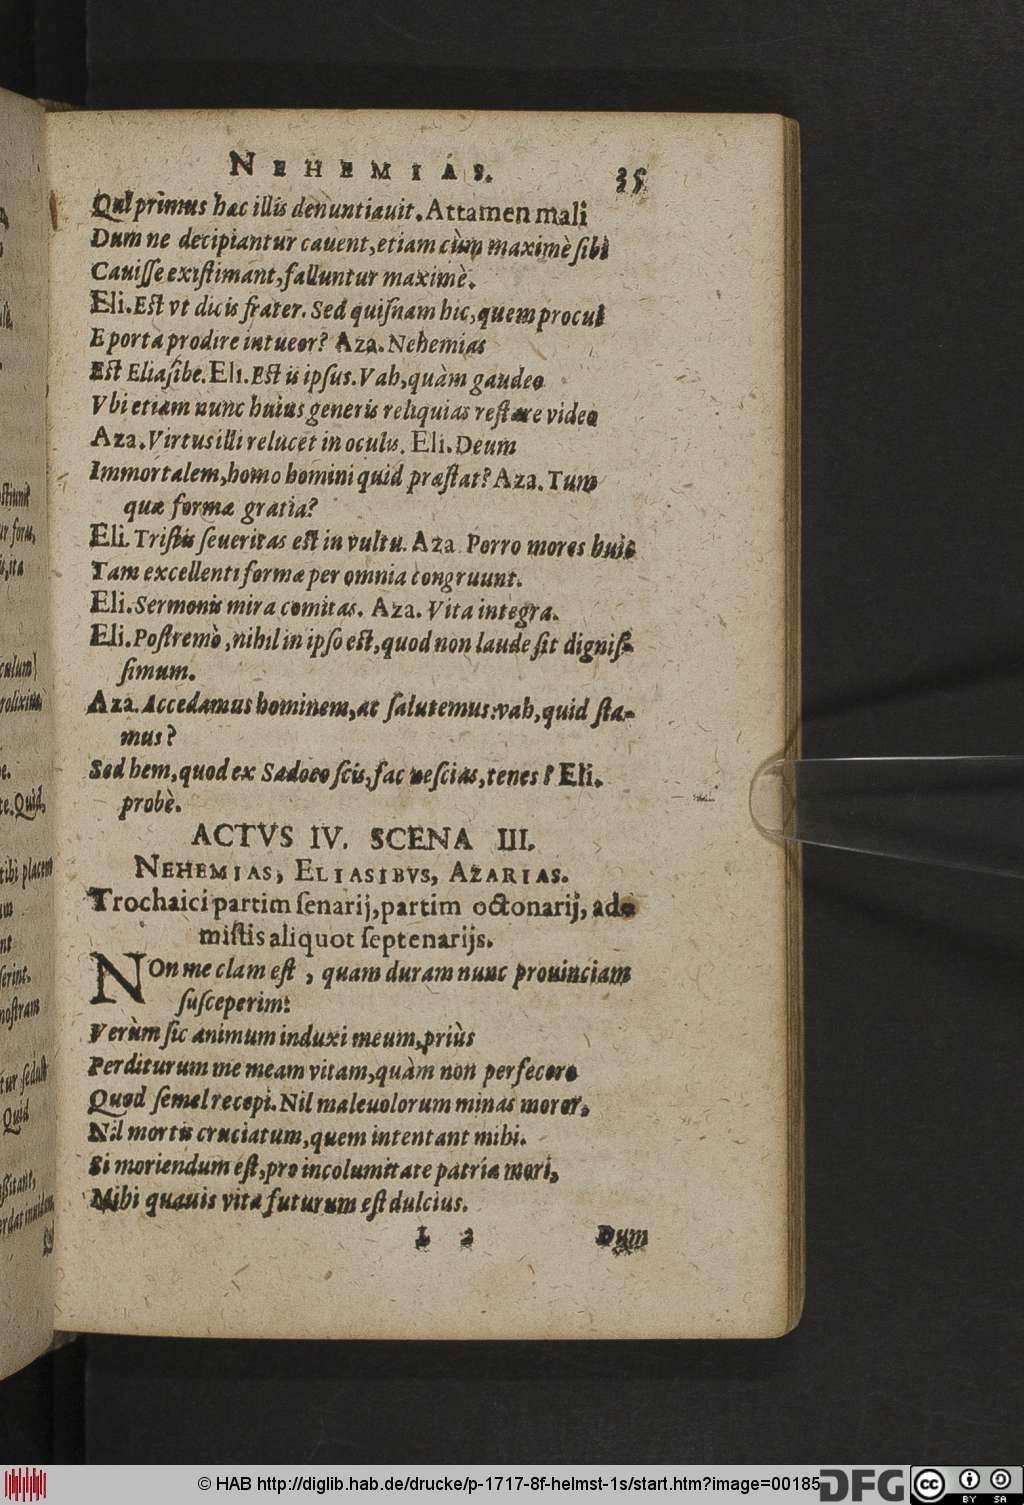 NEHEMIAS. 35
Qui primus hac illis denuntiauit. Attamen mali
Dum ne decipiantur cauent, etiam cùm maximè sibi
Cauisse existimant, falluntur maximè.
Eli. Est vt dicis frater. Sed quisnam hic, quem procul
E porta prodire intueor? Aza. Nehemias
Est Eliasibe. Eli. Est is ipsus. Vah, quàm gaudeo
Vbi etiam nunc huius generis reliquias restare video
Aza. Virtus illi relucet in oculis. Eli. Deum
Immortalem, homo homini quid præstat? Aza. Tum
quæ formæ gratia?
Eli. Tristis seueritas est in vultu. Aza. Porro mores huic
Tam excellenti formæ per omnia congruunt.
Eli. Sermonis mira comitas. Aza. Vita integra.
Eli. Postremò, nihil in ipso est, quod non laude sit dignis-
simum.
Aza. Accedamus hominem, ac salutemus: vah, quid sta-
mus?
Sed hem, quod ex Sadoco scis, fac nescias, tenes? Eli.
probè.
ACTVS IV. SCENA III.
NEHEMIAS, ELIASIBVS, AZARIAS.
Trochaici partim senarij, partim octonarij, ad-
mistis aliquot septenarijs.
NOn me clam est, quam duram nunc prouinciam
susceperim:
Verùm sic animum induxi meum, priùs
Perditurum me meam vitam, quàm non perfecero
Quod semel recepi. Nil maleuolorum minas moror,
Nil mortis cruciatum, quem intentant mihi.
Si moriendum est, pro incolumitate patriæ mori,
Mihi quauis vita futurum est dulcius.
L 2 Dum
© HAB http://diglib.hab.de/drucke/p-1717-8f-helmst-1s/start.htm?image=00185
DFG
cc BY SA